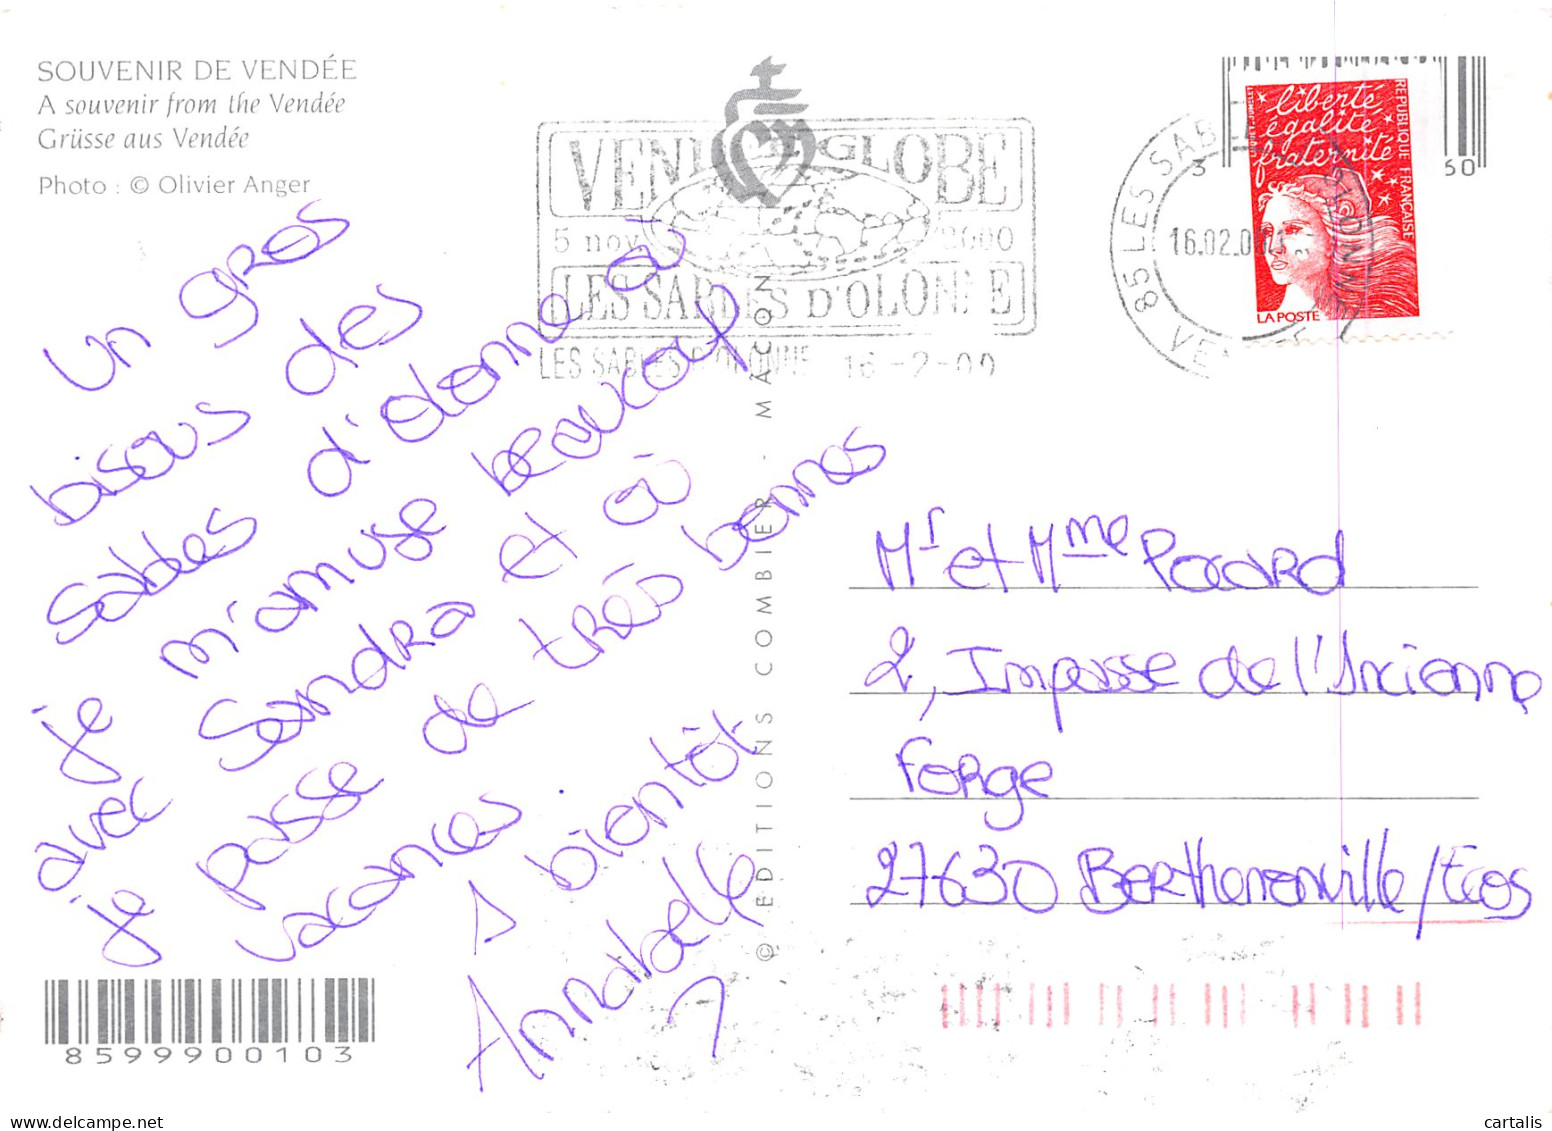 SOUVENIR DE VENDÉE
A souvenir from the Vendée
Grüsse aus Vendée
Photo : © Olivier Anger
un gros
bisous des
Sables d'Olonne où
je m'amuse beaucoup
avec Sandra et où
je passe de très bonnes
vacances.
A bientôt.
Annabelle
8599900103
© EDITIONS COMBIER - MACON
VENDEE GLOBE
5 nov 2000
LES SABLES D'OLONNE
LES SABLES D'OLONNE 16-2-00
85 LES SABLES D'OLONNE
16.02.00
VENDEE
3
50
liberté
égalité
fraternité
REPUBLIQUE FRANÇAISE
LA POSTE
Mr et Mme Pocard
2, Impasse de l'Ancienne
Forge
27630 Berthenonville/Ecos
www.delcampe.net
cartalis